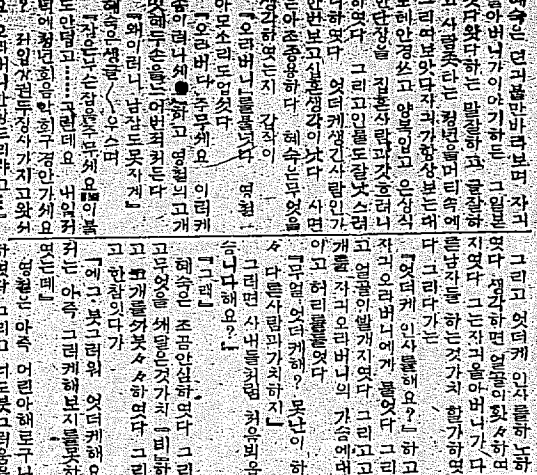 혜숙은 만바라보며 자긔
올아버니가이야기하든 그일본
갓다왓다하는 말잘하고 글잘하
고 사람좃타는 청년을머리속에
그리여보앗다자긔가항상보는대
모테안경쓰고 양복입고 은상식
한단장을 집흔사람과갓흐려니
하엿다 그리고인물도잘낫스려
니하엿다 엇더케생긴사람인가
한번보고십흔생각이낫다 사면
은아조종용하다 혜숙은무엇을
생각하엿는지 갑작이
『오라버니』를불럿다 영철
아모소리도업섯다
『오라버니 주무세요 이러케
좀이러나세●하고 영철의고개
밋헤손을느어번쩍커든다
『왜이러니 남잠도못자게』
혜숙은생글〱우스며
『잠은무슨잠을주무세요이불
도안덥고……그런데요 내일저
녁에청년회음악회구경안가세요
? 입상권두장사가지고왓서
그리고 엇더케 인사를하노
엿다 생각하면 얼골이홧々하여
지엿다 그는자긔올아버니가 다
른남자들 하는것가치 할가하엿
다 그리다가는
『엇더케 인사를해요?』하고
자긔오라버니에게 물엇다 그리
고 얼골이발개지엿다 그리고고
개를 자긔오라버니의 가슴에대
이고 허리를틀엇다
『무얼 엇더케해? 못난이 하
々 다른사람과가치하지』
그러면 사내들처럼 처음뵈옵
습니다해요?』
『그래』
혜숙은 조곰안심하엿다 그리
고무엇을 깨달은것가치
고개를 하엿다 그리
고 한참잇다가
『에그 붓그러워 엇더케해요
저는 아즉 그러케해보지를못하
엿는데』
영철은 아즉 어린아해로구나
하엿다 그리고 너도붓그러움을